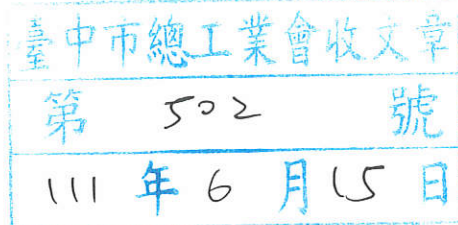 臺中市總工業會收文章
第 502 號
111 年 6 月 15 日